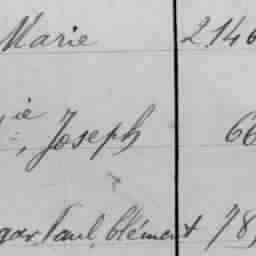 Marie 2146
ie, Joseph 66
gar Paul Clément 78